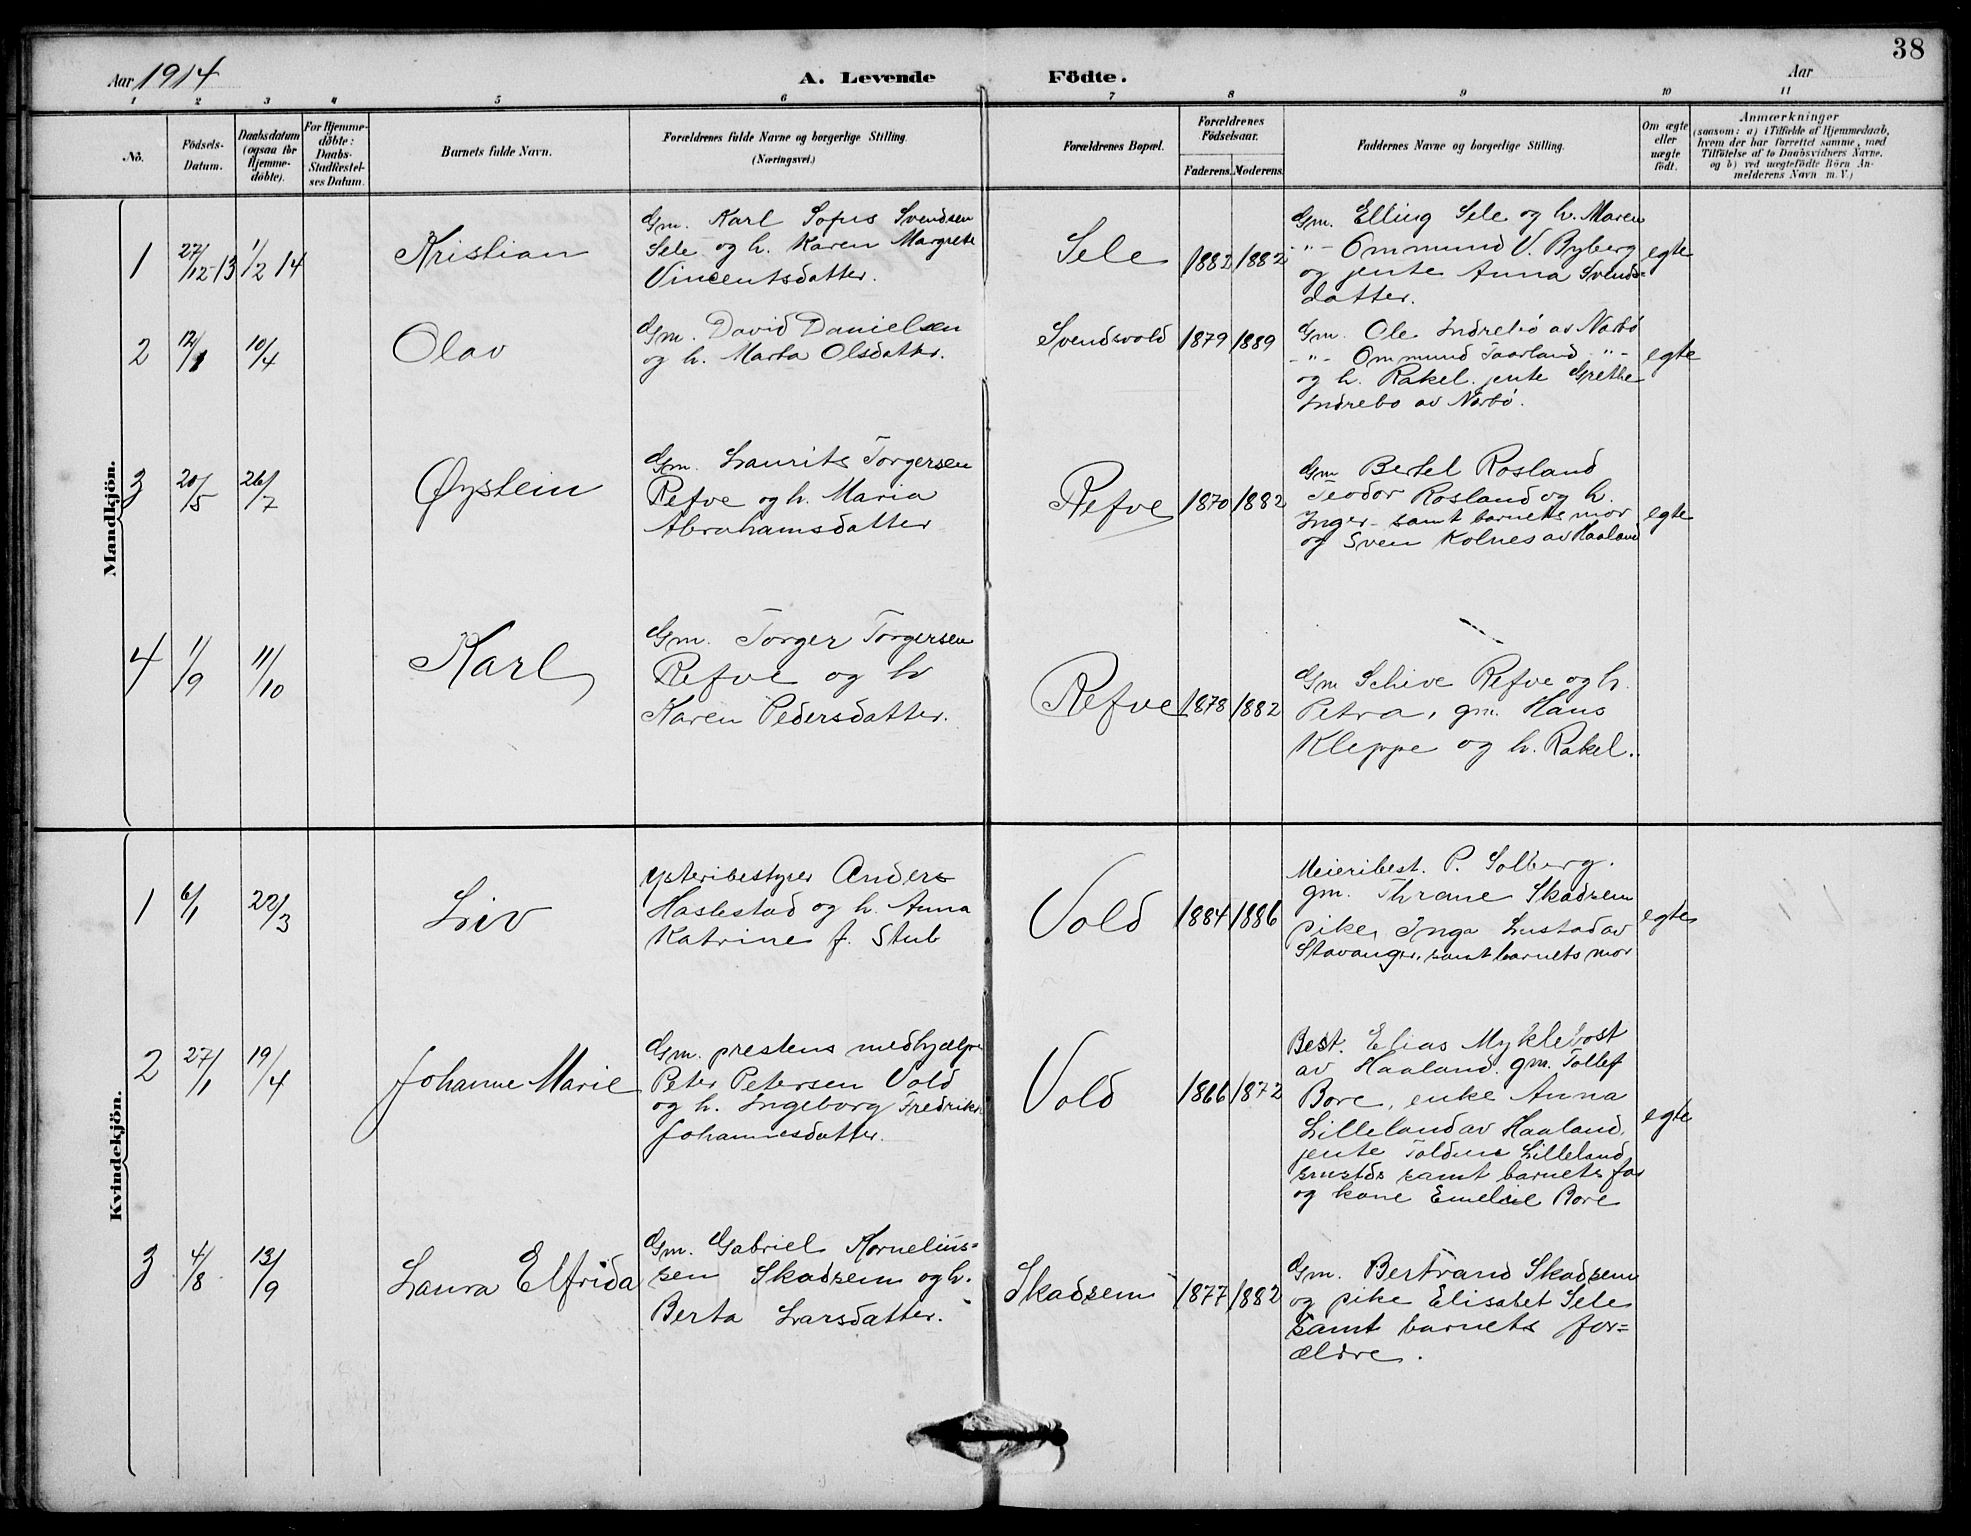 38
Aar 1914
A. Levende Födte.
Aar
1 2 3 4 5 6 7 8 9 10 11
No.
Födsels-
Datum.
Daabsdatum
(ogsaa for
Hjemme-
döbte).
For Hjemme-
döbte:
Daabs-
Stadfæstel-
ses Datum.
Barnets fulde Navn.
Forældrenes fulde Navne og borgerlige Stilling.
(Næringsvei.)
Forældrenes Bopæl.
Forældrenes
Födselsaar.
Faderens. Moderens.
Faddernes Navne og borgerlige Stilling.
Om ægte
eller
uægte
födt.
Anmærkninger
(saasom: a) i Tilfælde af Hjemmedaab,
hvem der har forrettet samme, med
Tilföielse af to Daabsvidners Navne,
og b) ved uægtefödte Börn An-
melderens Navn m. V.)
Mandkjön.
1 27/12-13 1/2 14 Kristian
Gm. Karl Sofus Svendsen
Sele og h. Karen Margrete
Vincentsdatter.
Sele 1882 1882
Gm. Elling Sele og h. Maren
-"- Ommund V. Byberg
og jente Anna Svends=
datter.
egte
2 12/1 10/4 Olav
Gm. David Danielsen
og h. Marta Olsdatter.
Svendsvold 1879 1889
Gm. Ole Indrebø av Nærbø
-"- Ommund Taarland -"-
og h. Rakel. jente Grethe
Indrebo av Nærbø.
egte
3 20/5 26/7 Øystein
Gm. Laurits Torgersen
Refve og h. Maria
Abrahamsdatter
Refve 1870 1882
Gm Bertel Rosland
Teodor Rosland og h.
Inger - samt barnets mor
og Sven Kolnes av Haaland
egte
4 1/9 11/10 Karl
Gm. Torger Torgersen
Refve og h
Karen Pedersdatter.
Refve 1878 1882
Gm Schive Refve og h.
Petra, gm. Hans
Kleppe og h. Rakel.
Kvindekjön.
1 6/1 22/3 Liv
Ysteribestyrer Anders
Haslestad og h. Anna
Katrine f. Stub
Vold 1884 1886
Meieribest. P. Solberg.
gm. Thrane Skadsem
pike Inga Lustad av
Stavanger, samt barnets mor
egte
2 27/1 19/4 Johanne Marie
Gm. prestens medhjælper
Peter Petersen Vold
og h. Ingeborg Fredrikke
Johannesdatter.
Vold 1866 1872
Best. Elias Myklebost
av Haaland. gm. Tollef
Bore, enke Anna
Lilleland av Haaland,
jente Lilleland
samt barnets far
og kone Emelie Bore
egte
3 4/8 13/9 Laura Elfrida
Gm. Gabriel Kornelius=
sen Skadsem og h.
Berta Larsdatter.
Skadsem 1877 1882
Gm. Bertrand Skadsem
og pike Elisabet Sele
samt barnets for=
ældre.